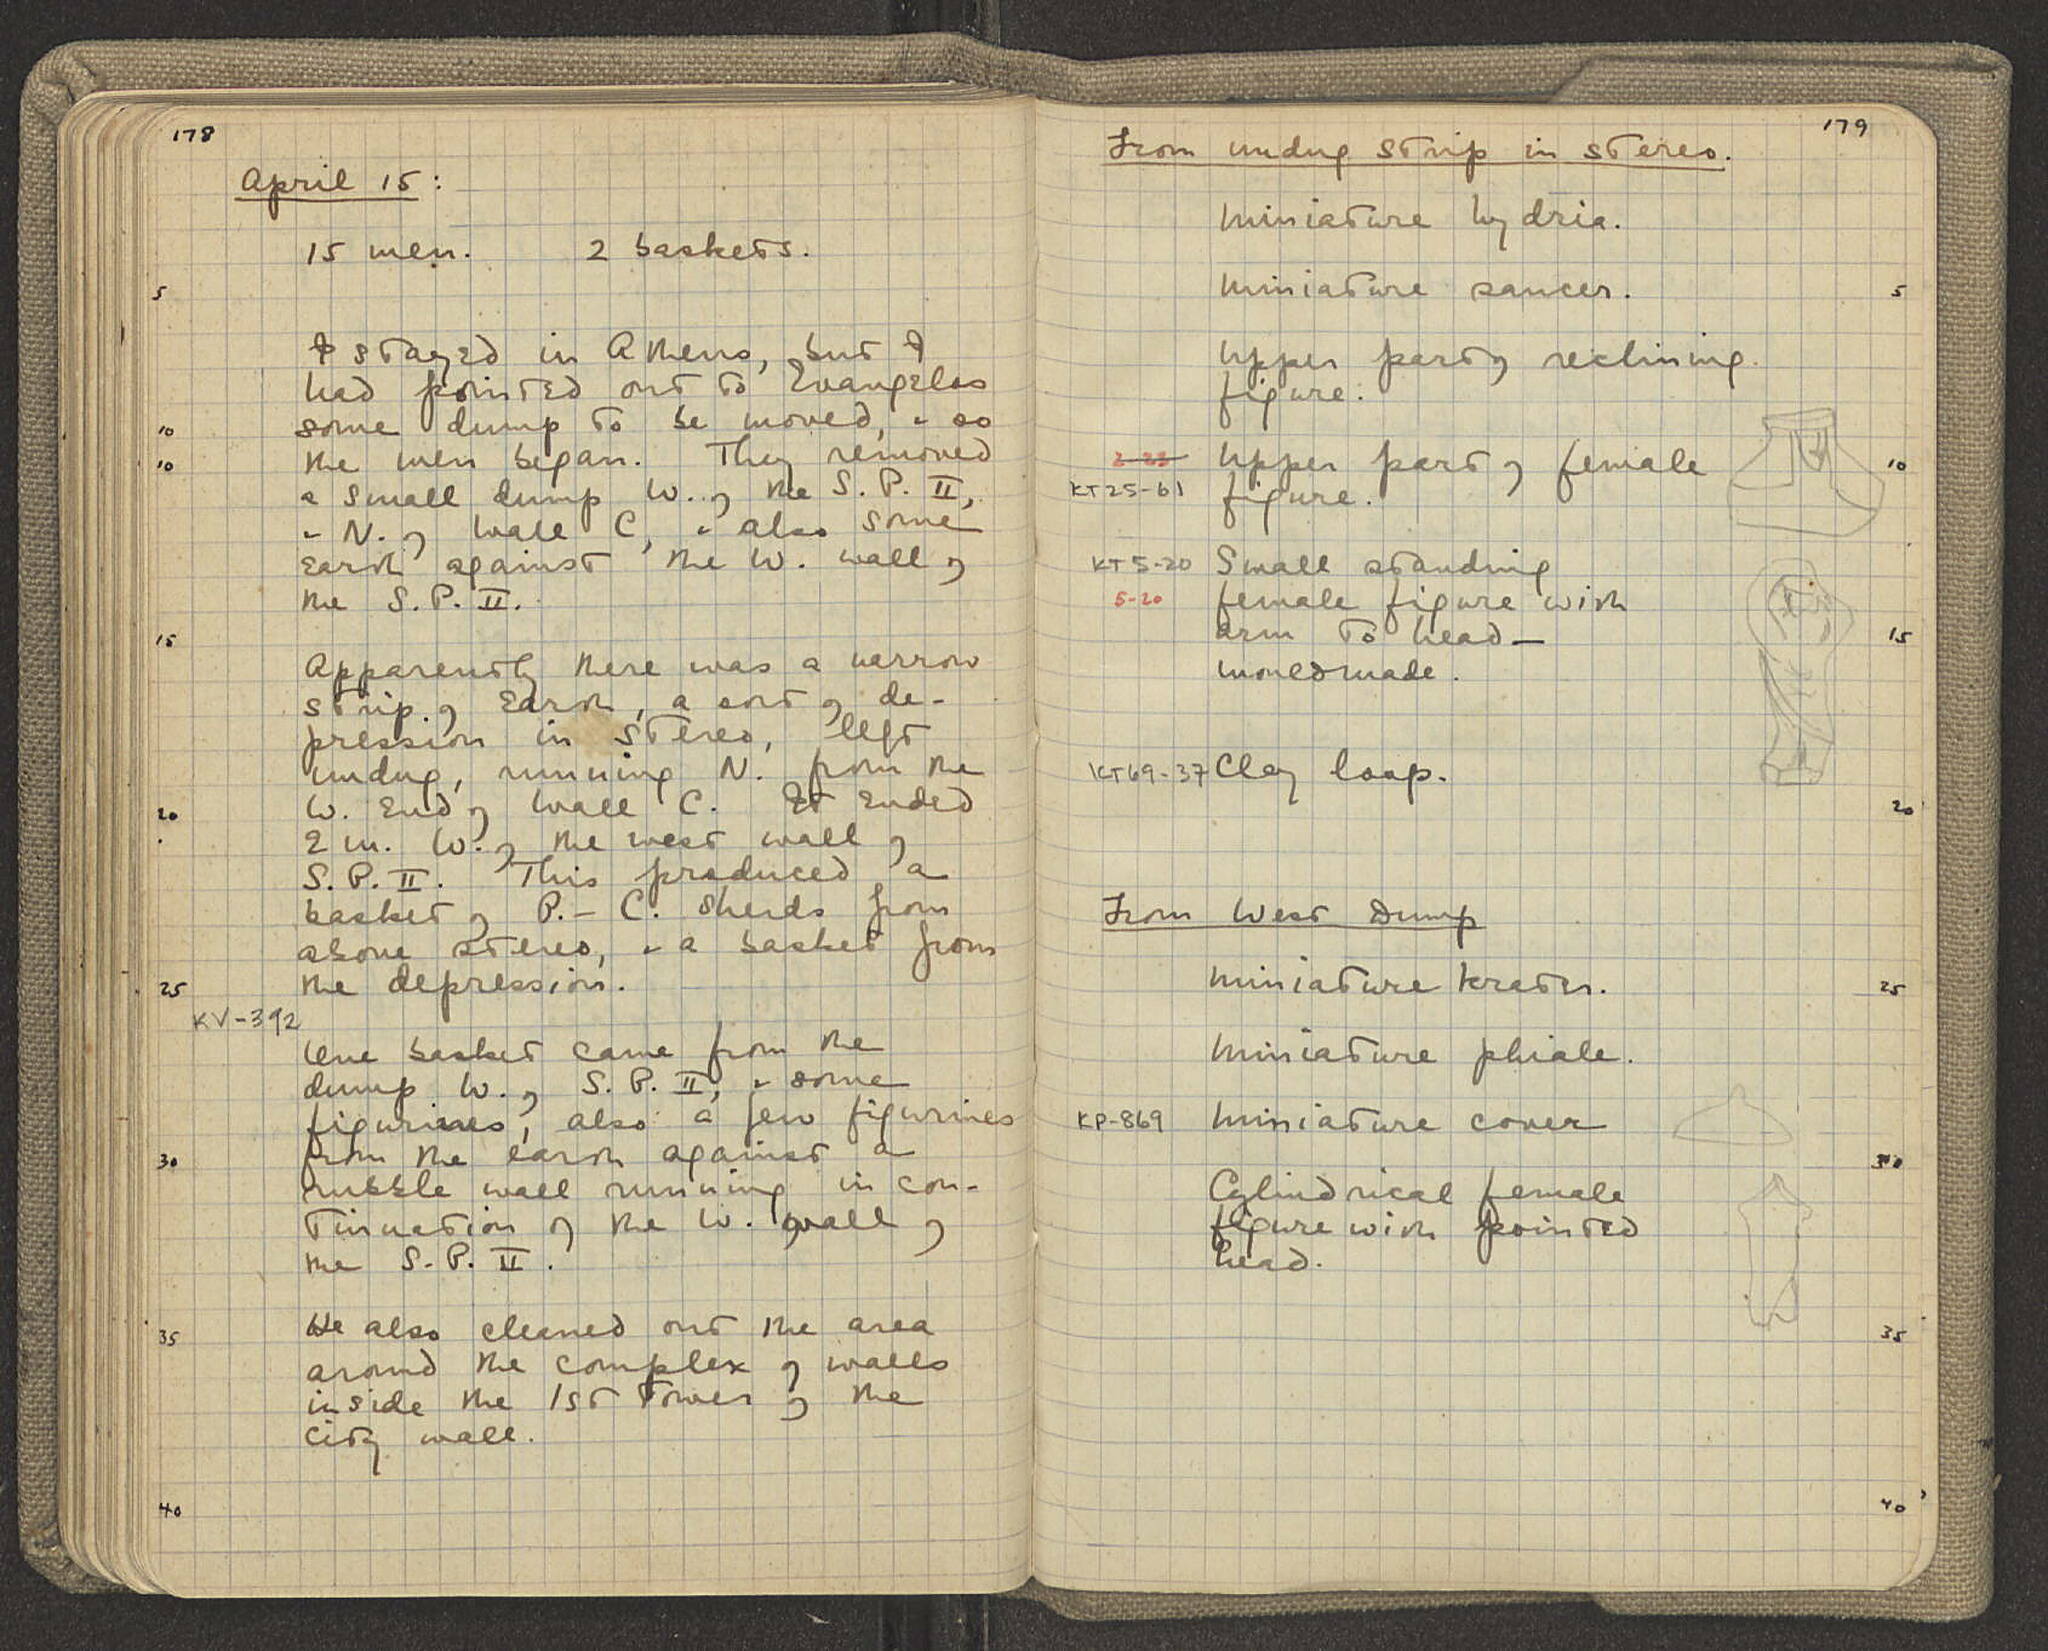 178
April 15:
15 men. 2 baskets.
5
I stayed in Athens, but I
had pointed out to Evangelos
10 some dump to be moved, & so
10 the men began. They removed
a small dump W. of the S. P. II,
& N. of wall C, & also some
earth against the W. wall of
the S. P. II.
15
Apparently there was a narrow
strip of earth, a sort of de-
pression in stereo, left
undug, running N. from the
20 W. end of wall C. It ended
2 m. W. of the west wall of
S. P. II. This produced a
basket of P.-C. sherds from
above stereo, & a basket from
25 the depression.
KV-392
One basket came from the
dump W. of S. P. II, & some
figurines, also a few figurines
30 from the earth against a
rubble wall running in con-
tinuation of the W. wall of
the S. P. II.
35 He also cleaned out the area
around the complex of walls
inside the 1st tower of the
city wall.
40
179
From undug strip in stereo.
Miniature hydria.
Miniature saucer. 5
Upper part of reclining
figure.
2-23 Upper part of female 10
KT25-61 figure.
KT5-20 Small standing
5-20 female figure with
arm to head — 15
mouldmade.
KT69-37 Clay loop.
20
From West Dump
Miniature krater. 25
Miniature phiale.
KP-869 Miniature cover
30
Cylindrical female
figure with pointed
head.
35
40